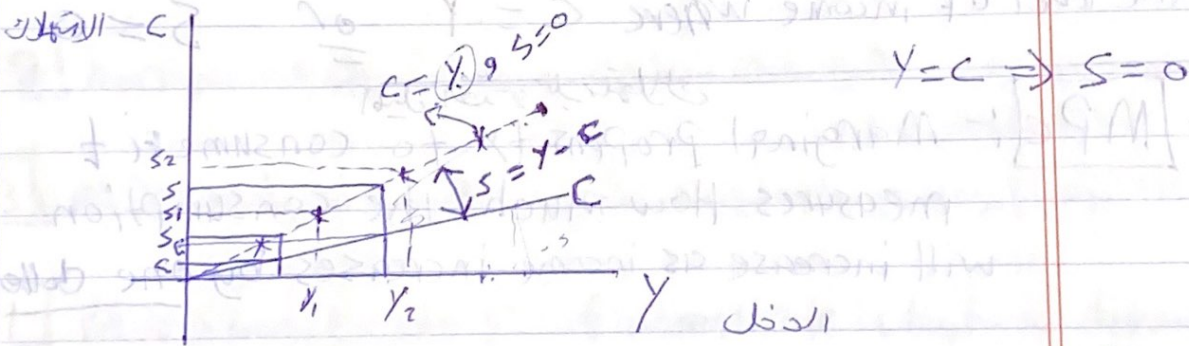 الاستهلاك C
C = Y, S=0
Y = C ⇒ S = 0
S2
S
S1
S = Y - C
C
Y1
Y2
Y
الدخل